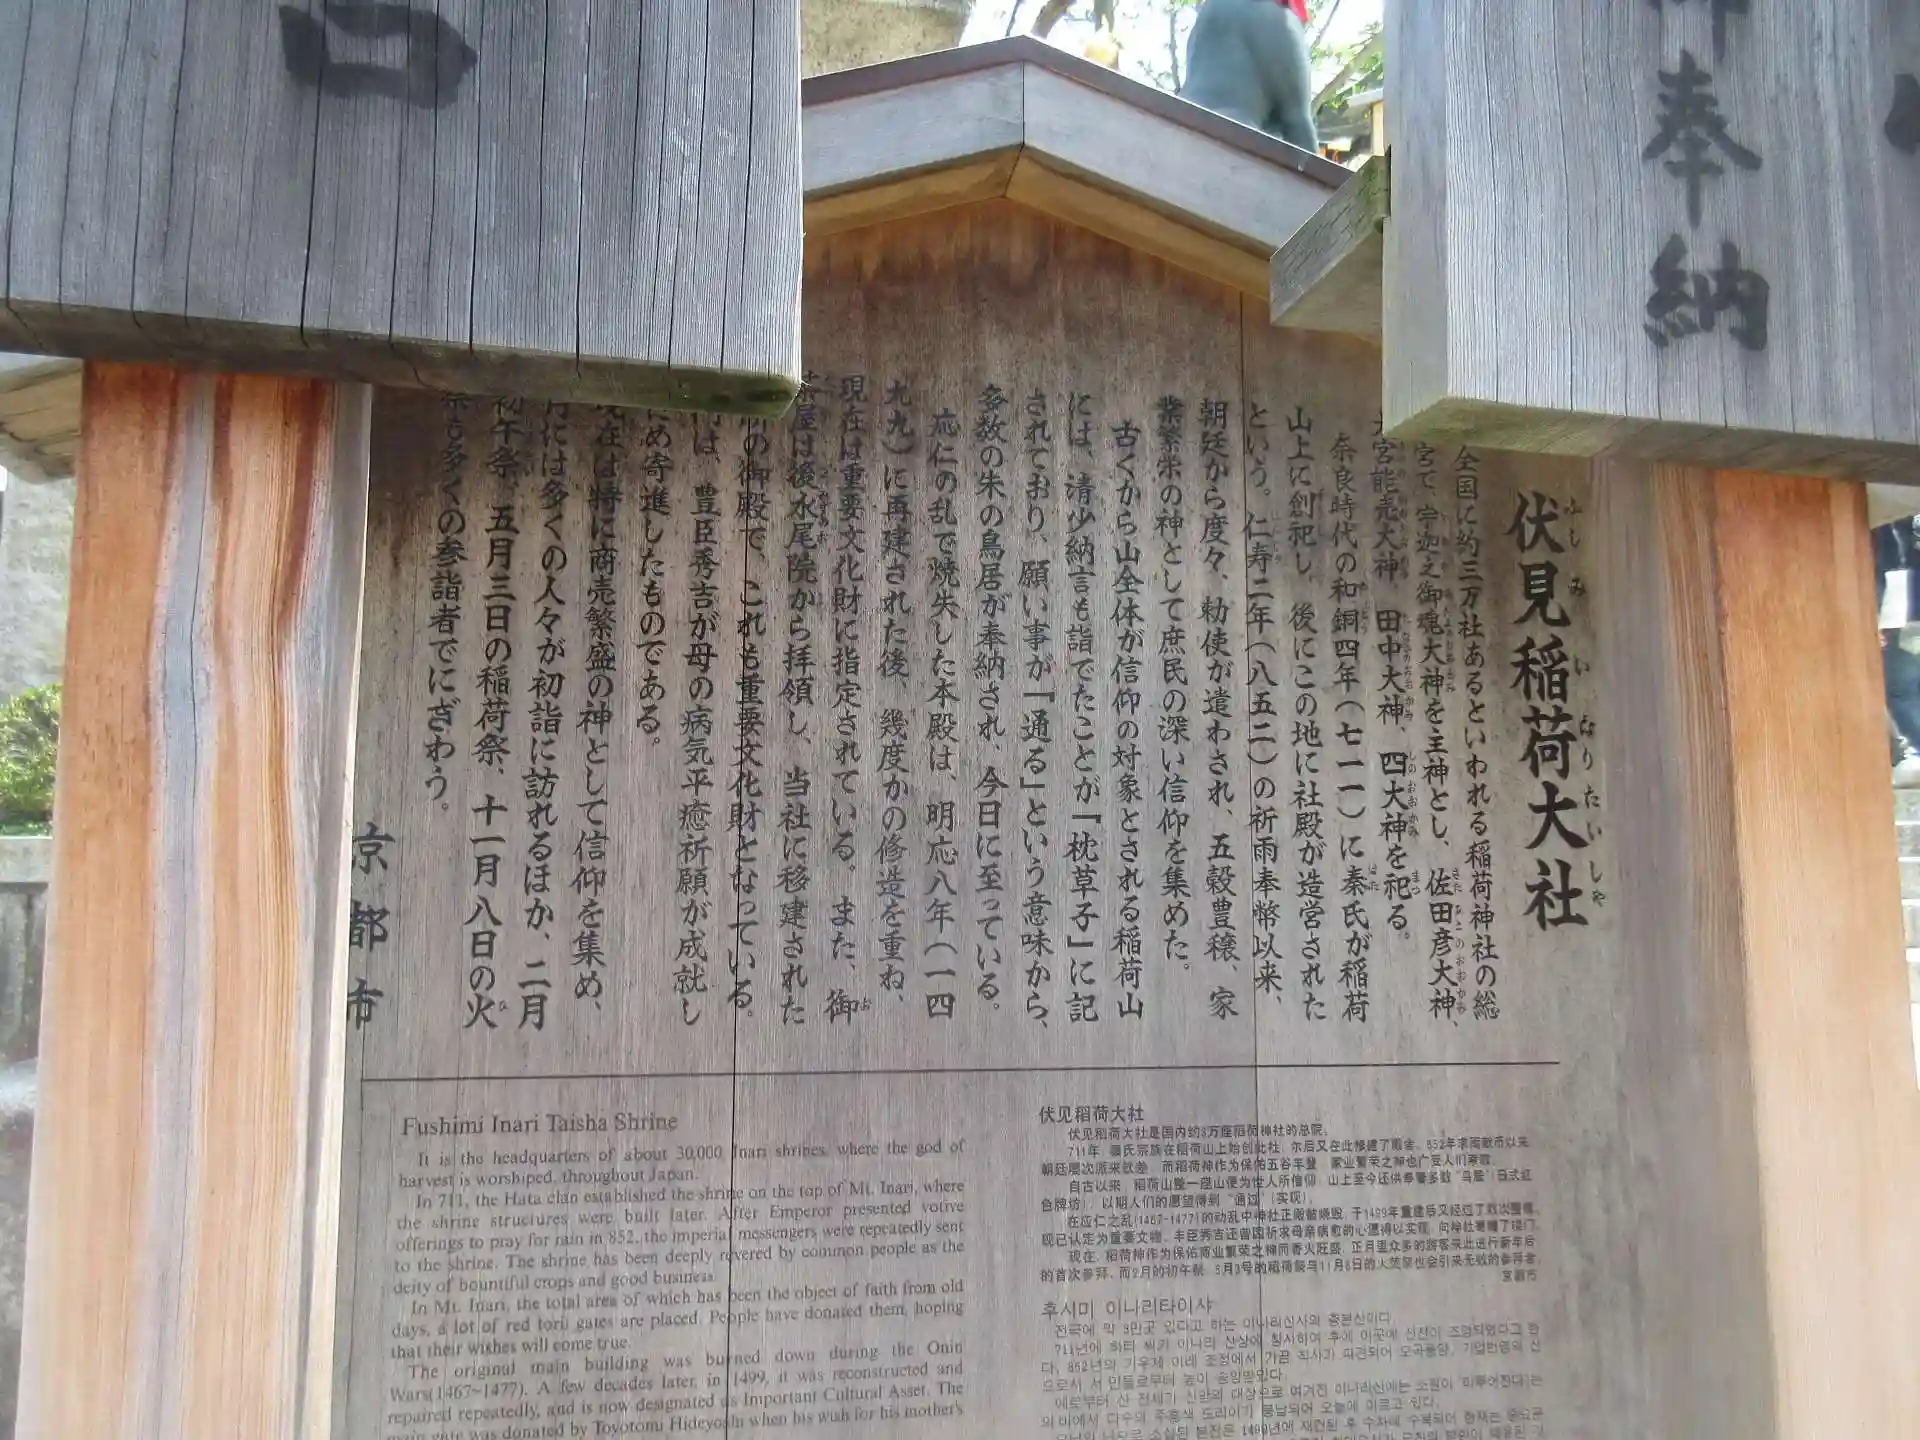 口
奉納
伏見稲荷大社
ふしみいなりたいしゃ
全国に約三万社あるといわれる稲荷神社の総
宮で、宇迦之御魂大神を主神とし、佐田彦大神、
大宮能売大神、田中大神、四大神を祀る。
奈良時代の和銅四年(七一一)に秦氏が稲荷
山上に創祀し、後にこの地に社殿が造営された
という。仁寿二年(八五二)の祈雨奉幣以来、
朝廷から度々、勅使が遣わされ、五穀豊穣、家
業繁栄の神として庶民の深い信仰を集めた。
古くから山全体が信仰の対象とされる稲荷山
には、清少納言も詣でたことが『枕草子』に記
されており、願い事が「通る」という意味から、
多数の朱の鳥居が奉納され、今日に至っている。
応仁の乱で焼失した本殿は、明応八年(一四
九九)に再建された後、幾度かの修造を重ね、
現在は重要文化財に指定されている。また、御
茶屋は後水尾院から拝領し、当社に移建された
の御殿で、これも重要文化財となっている。
門は、豊臣秀吉が母の病気平癒祈願が成就し
ため寄進したものである。
現在は特に商売繁盛の神として信仰を集め、
月には多くの人々が初詣に訪れるほか、二月
初午祭、五月三日の稲荷祭、十一月八日の火
祭も多くの参詣者でにぎわう。
京都市
Fushimi Inari Taisha Shrine
It is the headquarters of about 30,000 Inari shrines, where the god of
harvest is worshiped, throughout Japan.
In 711, the Hata clan established the shrine on the top of Mt. Inari, where
the shrine structures were built later. After Emperor presented votive
offerings to pray for rain in 852, the imperial messengers were repeatedly sent
to the shrine. The shrine has been deeply revered by common people as the
deity of bountiful crops and good business.
In Mt. Inari, the total area of which has been the object of faith from old
days, a lot of red torii gates are placed. People have donated them, hoping
that their wishes will come true.
The original main building was burned down during the Onin
Wars(1467~1477). A few decades later, in 1499, it was reconstructed and
repaired repeatedly, and is now designated as Important Cultural Asset. The
main gate was donated by Toyotomi Hideyoshi when his wish for his mother's
伏见稻荷大社
伏见稻荷大社是国内约3万座稻荷神社的总院。
711年，秦氏宗族在稻荷山上始创此社，尔后又在此修建了殿舍。852年求雨献币以来
朝廷屡次派来钦差，而稻荷神作为保佑五谷丰登、家业繁荣之神也广受人们崇敬。
自古以来，稻荷山整一座山便为世人所信仰，山上至今还供奉着多数“鸟居”(日式红
色牌坊)，以期人们的愿望得到“通过”(实现)。
在应仁之乱(1467-1477)的动乱中神社正殿被烧毁，于1499年重建后又经过了数次整修，
现已认定为重要文物。丰臣秀吉还曾因祈求母亲病愈的心愿得以实现，向神社寄赠了楼门。
现在，稻荷神作为保佑商业繁荣之神而香火旺盛，正月里众多的游客来此进行新年后
的首次参拜，而2月的初午祭、5月3号的稻荷祭与11月8日的火焚祭也会引来无数的参拜者。
京都市
후시미 이나리타이샤
전국에 약 3만곳 있다고 하는 이나리신사의 총본산이다.
711년에 하타 씨가 이나리 산상에 창사하여 후에 이곳에 신전이 조영되었다고 한
다. 852년의 기우제 이래 조정에서 가끔 칙사가 파견되어 오곡풍양, 가업번영의 신
으로서 서민들로부터 높이 숭앙받았다.
예로부터 산 전체가 신앙의 대상으로 여겨진 이나리산에는 소원이 '이루어진다'는